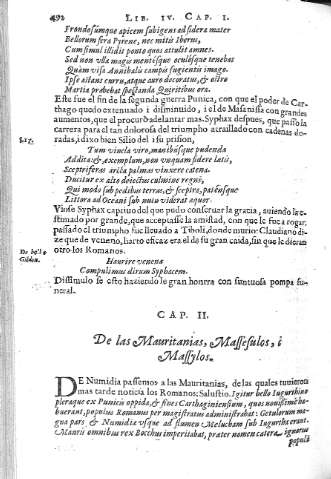 492 LIB. IV. CAP. I.
Frondosumque apicem subigens ad sidera mater
Bellorum fera Pyrene, nec mitis Iberus,
Cum simul illidit ponto quos attulit amnes.
Sed non ulla magis mentesque oculosque tenebat
Quàm visa Annibalis campis fugientis imago.
Ipse astans curru, atque auro decoratus, & ostro
Martia præbebat spectanda Quiritibus ora.
Este fue el fin de la segunda guerra Punica, con que el poder de Car-
thago quedo extenuado i disminuido, i el de Masinissa con grandes
aumentos, que el procurò adelantar mas. Syphax despues, que passo la
carrera para el tan dolorosa del triumpho atraillado con cadenas do-
radas, i dixo bien Silio del i su prision,
Lib. 17.
Tum vincla viro, manibusque pudenda
Addita, & exemplum, non unquam fidere lætis,
Sceptriferas arcta palmas vinxere catena.
Ducitur ex alto dejectus culmine regni,
Qui modo sub pedibus terras, & sceptra, patensque
Littora ad Oceani sub nutu viderat æquor.
Vino Syphax captivo del que pudo conservar la gracia, aviendo la es-
timado por grande, que acceptasse la amistad, con que le fue a rogar;
passado el triumpho fue llevado a Tiboli, donde murio: Claudiano di-
ze que de veneno, harto eficaz era el dà su gran caida, sin que le dieran
otro los Romanos.
De bello
Gildon.
Haurire venena
Compulimus dirum Syphacem.
Dissimulose esto haziendole gran honrra con suntuosa pompa fu-
neral.
CAP. II.
De las Mauritanias, Massesulos, i
Massylos.
DE Numidia passemos a las Mauritanias, de las quales tuvieron
mas tarde noticia los Romanos: Salustio. Igitur bello Iugurthino
pleraque ex Punicis oppida, & fines Carthaginiensium, quos novissimè ha-
buerant, populus Romanus per magistratus administrabat: Getulorum ma-
gna pars & Numidæ usque ad flumen Mulucham sub Iugurtha erant.
Mauris omnibus rex Bocchus imperitabat, præter nomen cætera ignarus
populi